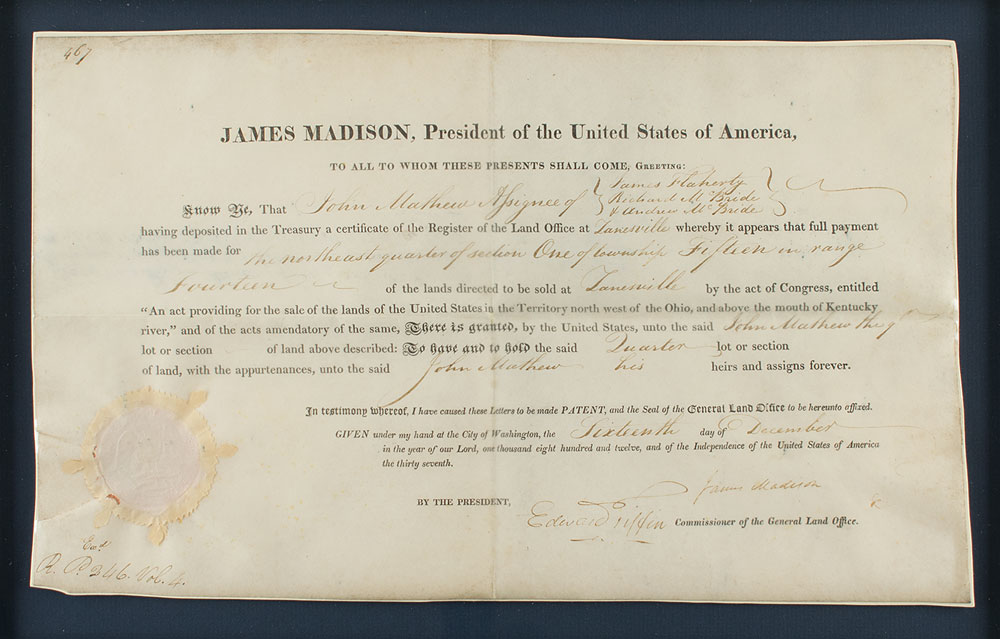 467
JAMES MADISON, President of the United States of America,
TO ALL TO WHOM THESE PRESENTS SHALL COME, GREETING:
James Flaherty
Know Ye, That John Mathew Assignee of Richard McBride
& Andrew McBride
having deposited in the Treasury a certificate of the Register of the Land Office at Zanesville whereby it appears that full payment
has been made for the northeast quarter of section One of township Fifteen in range
Fourteen of the lands directed to be sold at Zanesville by the act of Congress, entitled
“An act providing for the sale of the lands of the United States in the Territory north west of the Ohio, and above the mouth of Kentucky
river,” and of the acts amendatory of the same, There is granted, by the United States, unto the said John Mathew the qr
lot or section of land above described: To have and to hold the said Quarter lot or section
of land, with the appurtenances, unto the said John Mathew his heirs and assigns forever.
In testimony whereof, I have caused these Letters to be made PATENT, and the Seal of the General Land Office to be hereunto affixed.
GIVEN under my hand at the City of Washington, the Sixteenth day of December
in the year of our Lord, one thousand eight hundred and twelve, and of the Independence of the United States of America
the thirty seventh.
James Madison
BY THE PRESIDENT,
Edward Tiffin Commissioner of the General Land Office.
R. P. 346. Vol. 4.